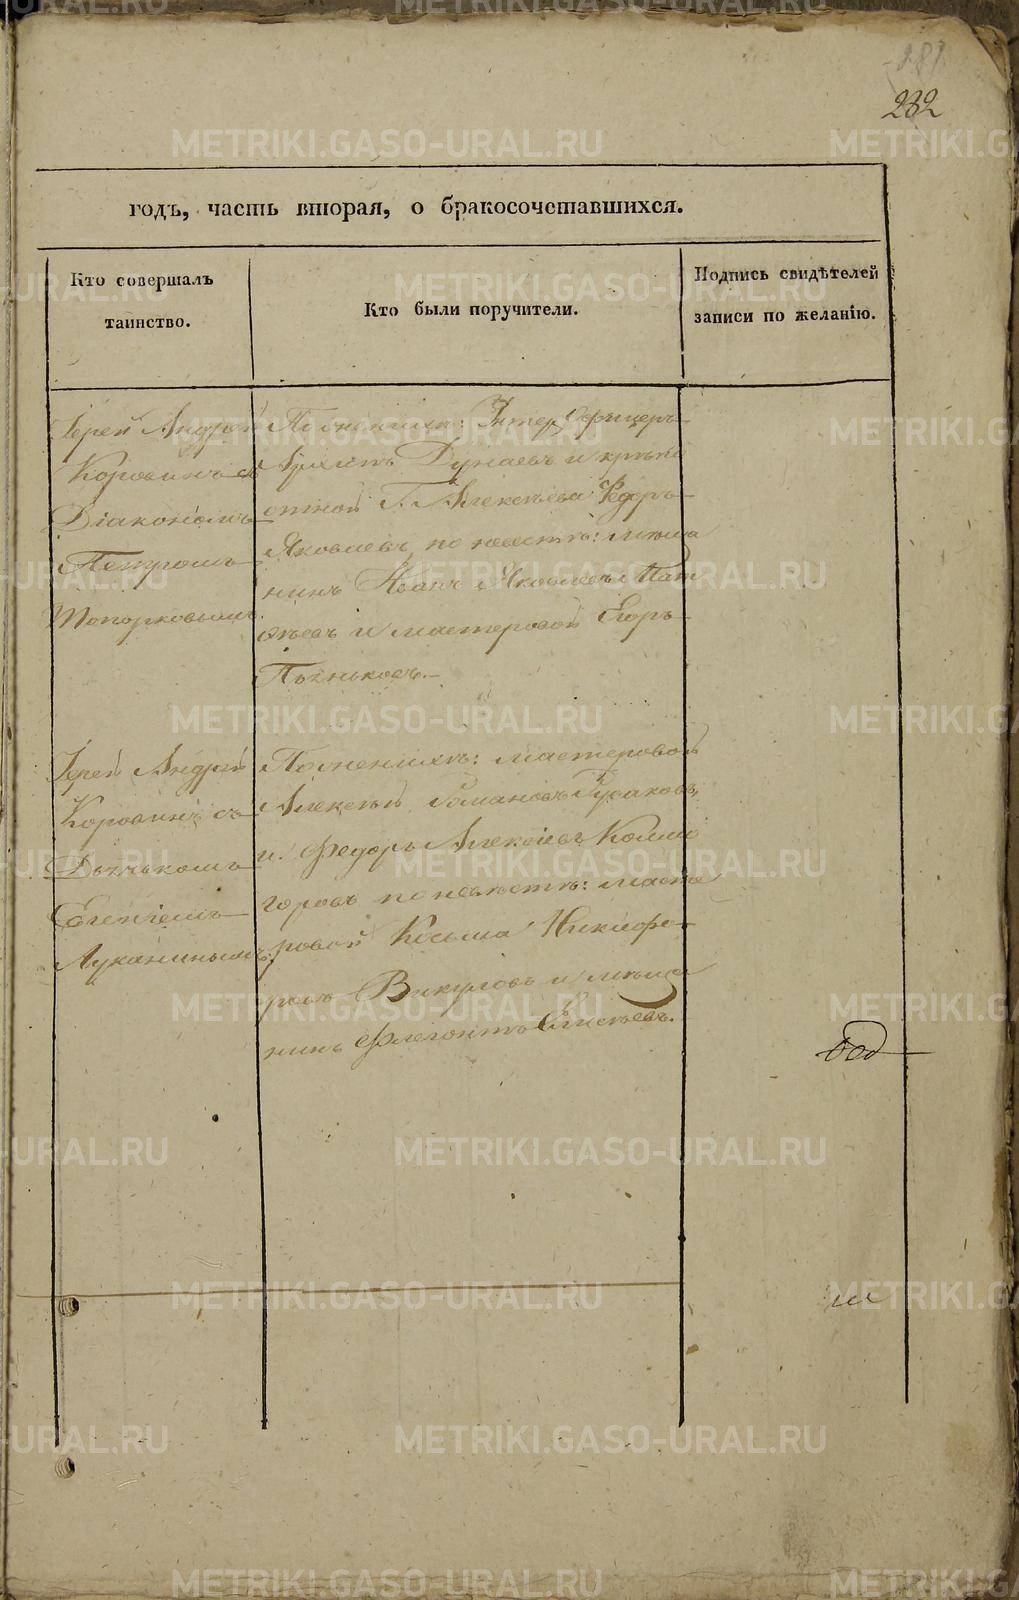 232
годъ, часть вторая, о бракосочетавшихся.
Кто совершалъ
таинство.
Кто были поручители.
Подпись свидѣтелей
записи по желанію.
Іерей Андрей
Коровинъ съ
Діакономъ
Петромъ
Топорковымъ
По женихѣ: Унтер Офицеръ
Дунаевъ и крѣпо
стной Г. Алексѣева Федоръ
Яковлевъ, по невестѣ: мѣща
нинъ Иванъ Яковлевъ Мат
вѣевъ и мастеровой Егоръ
Іерей Андрей
Коровинъ съ
Дьячькомъ
Евгеніемъ
Луканинымъ
По женихѣ: мастеровой
Алексѣй Романовъ
и Федоръ Алексѣевъ Колмо
горовъ по невѣстѣ: масте
ровой Косьма Никифо
ровъ Викуловъ и мѣща
нинъ Флегонтъ Елисѣевъ.
METRIKI.GASO-URAL.RU